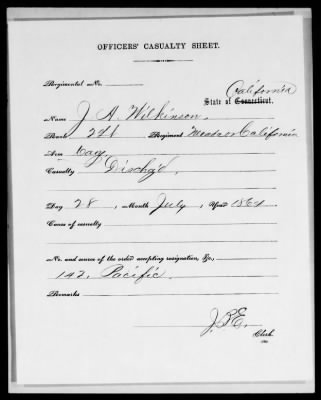 OFFICERS' CASUALTY SHEET.
Regimental No.
California
State of Connecticut.
Name J. A. Wilkinson.
Rank 2d Regiment California
Arm Cav
Casualty Disch'd.
Day 28, Month July, Year 1864
Cause of casualty
No. and source of the order accepting resignation, &c.,
142, Pacific.
Remarks
J.B.E.
Clerk.